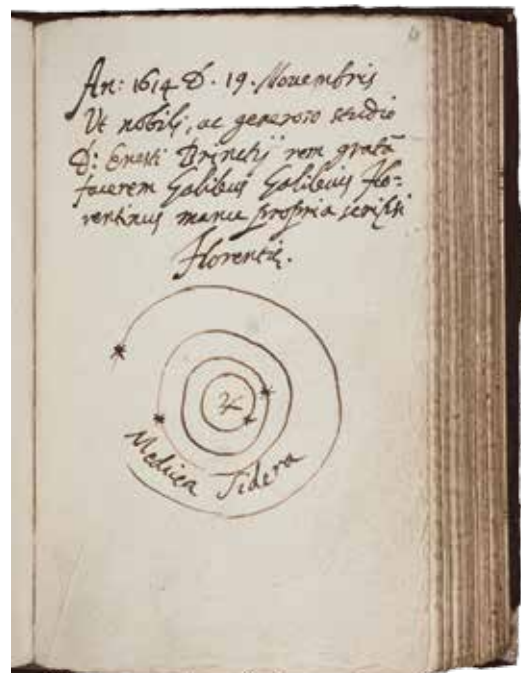 An: 1614 D. 19. Novembris
Ut nobili, ac generoso studio
D: Ernesti Brinctij rem gratã
facerem Galileus Galileius Flo-
rentinus manu propria scripsi
Florentiȩ.
♃
Medicea Sidera